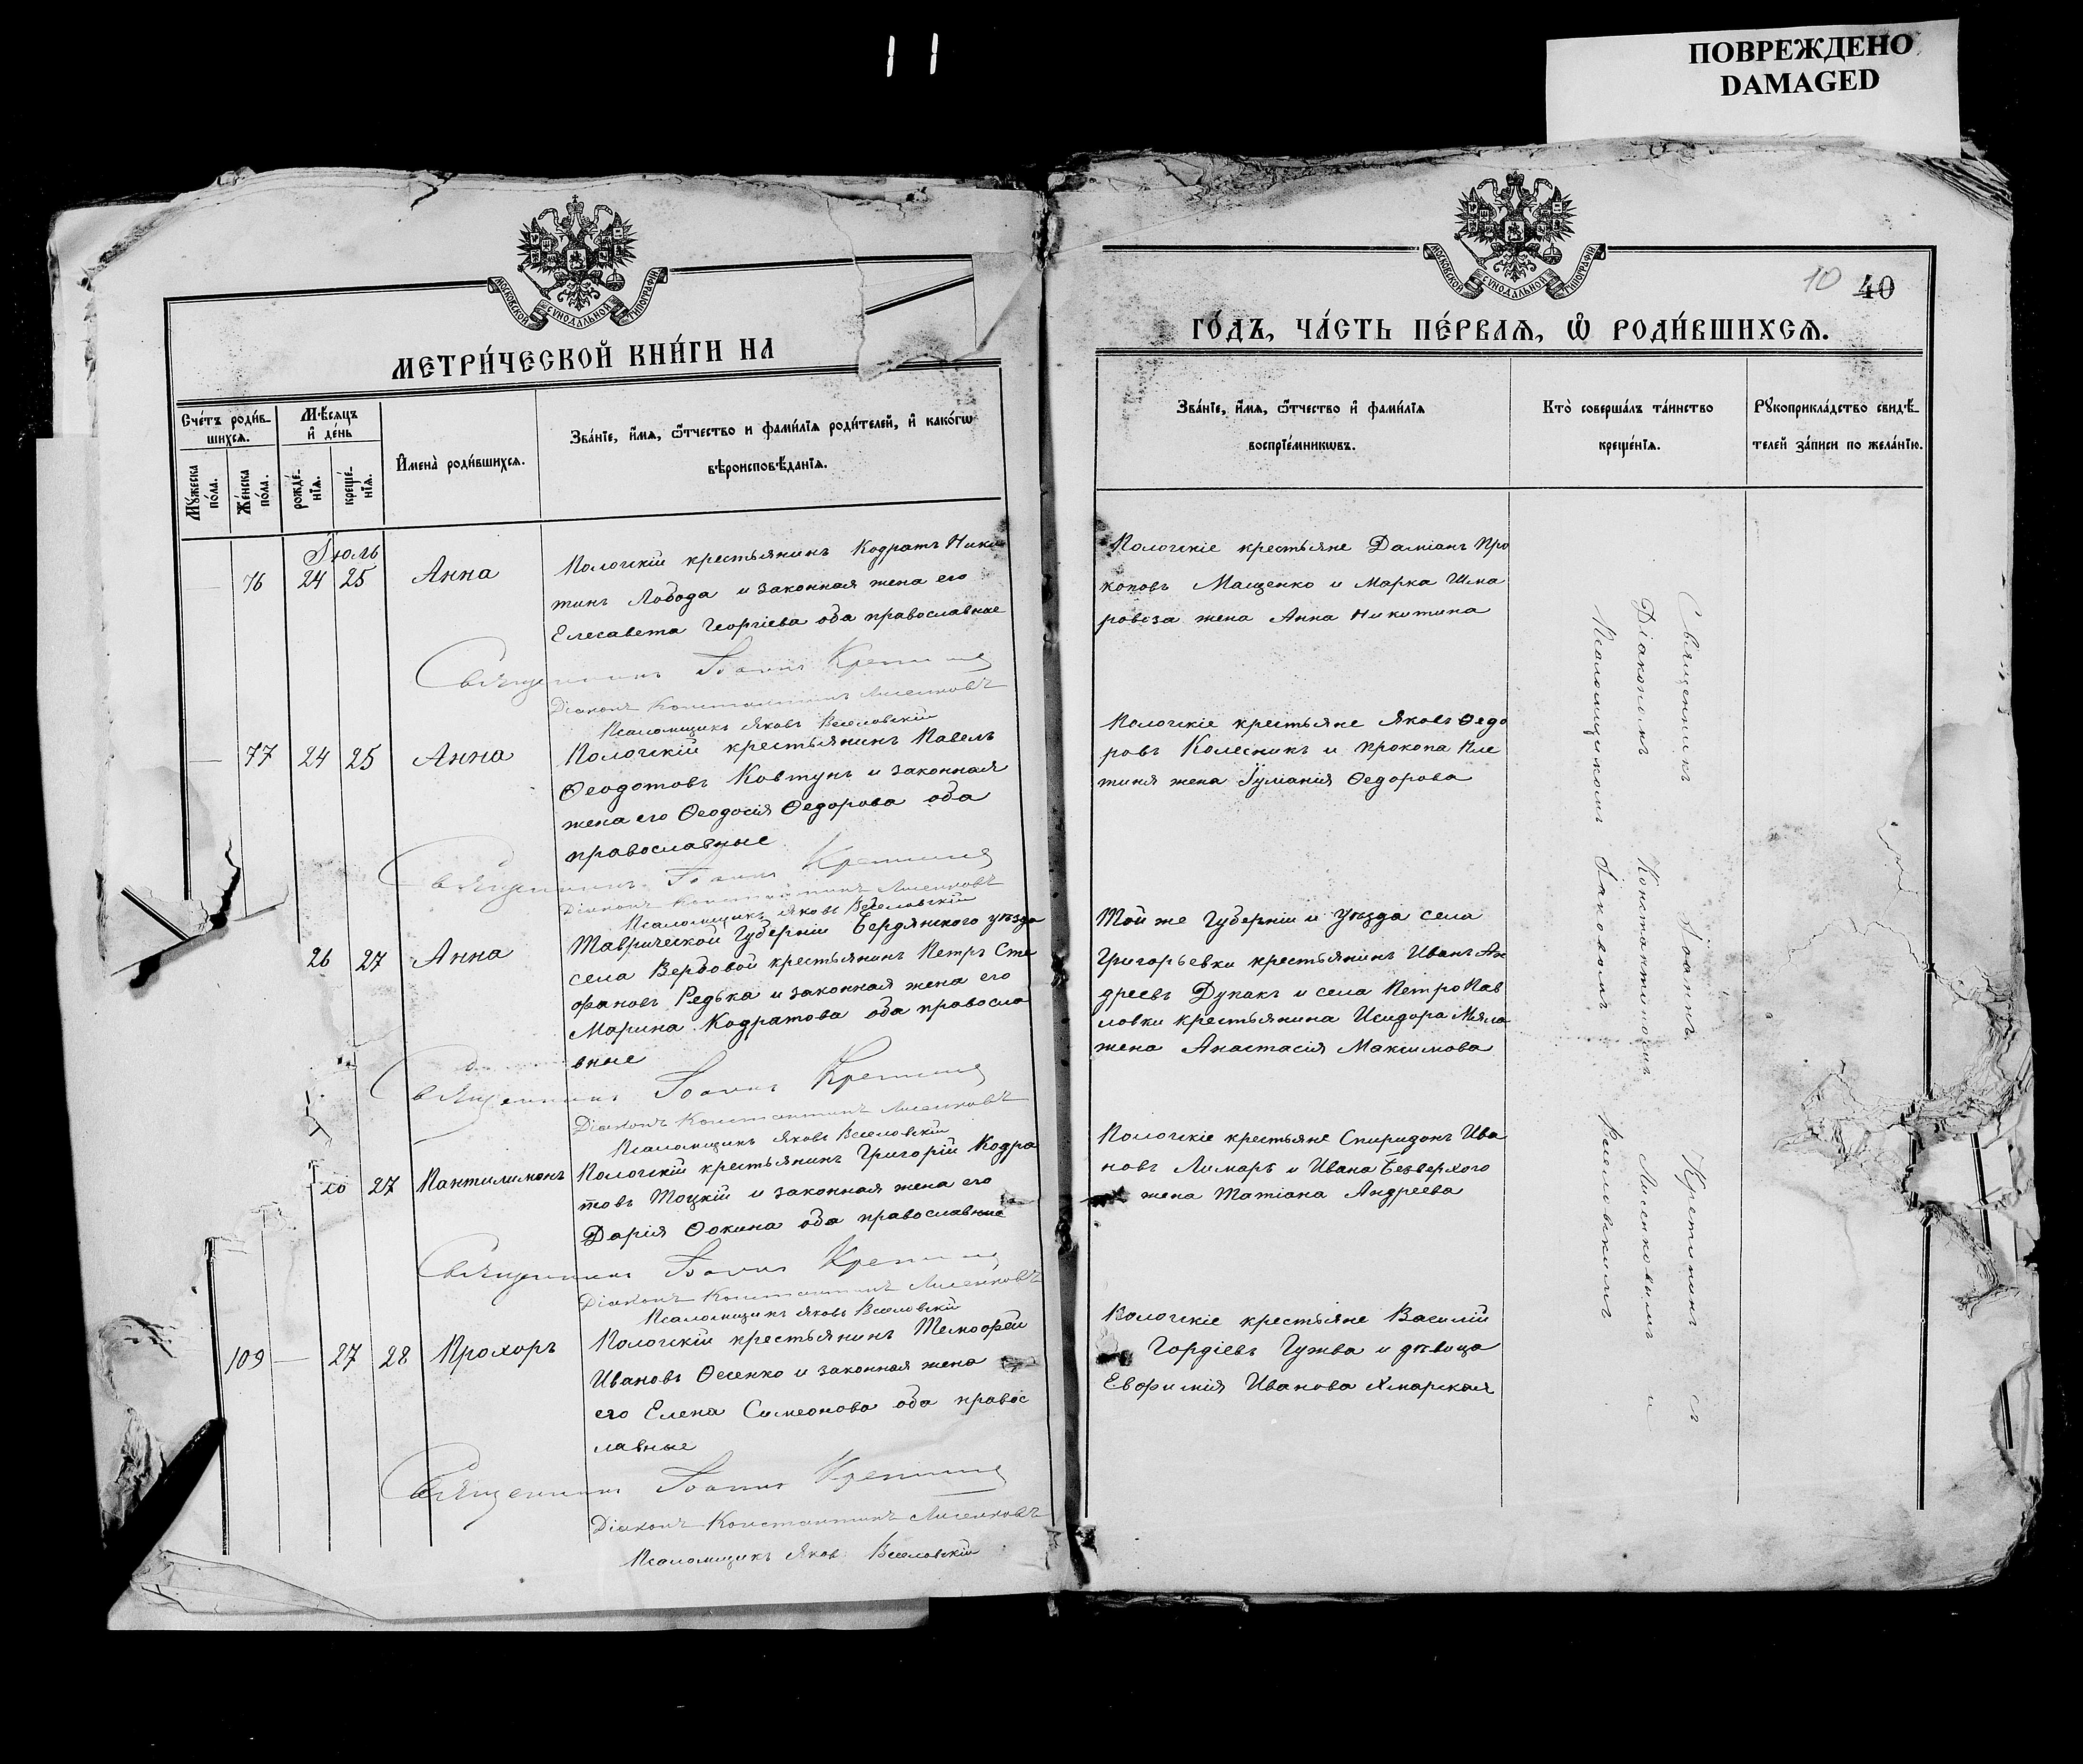 11
ПОВРЕЖДЕНО
DAMAGED
МОСКОВСКОЙ СѴНОДАЛЬНОЙ ТИПОГРАФІИ
МЕТРИ́ЧЕСКОЙ КНИ́ГИ НА
Сче́тъ роди́в-
шихся.
Мѣ́сяцъ
и҆ де́нь
Мꙋ́жеска
по́ла.
Же́нска
по́ла.
рожде́-
нїѧ.
креще́-
нїѧ.
И҆мена̀ роди́вшихсѧ.
Зва́нїе, и҆́мѧ, ѻ҆́тчество и фами́лїѧ роди́телей, и҆ како́гѡ
вѣроисповѣ́данїѧ.
Іюль
— 76 24 25 Анна
Пологскій крестьянинъ Кодратъ Ники
тинъ Лобода и законная жена его
Елесавета Георгіева оба православные
Священникъ Іоаннъ Кретининъ
Діаконъ Константинъ Лисенковъ
Псаломщикъ Яковъ Веселовскій
— 77 24 25 Анна
Пологскій крестьянинъ Павелъ
Ѳеодотовъ Ковтунъ и законная
жена его Ѳеодосія Ѳедорова оба
православные
Священникъ Іоаннъ Кретининъ
Діаконъ Константинъ Лисенковъ
Псаломщикъ Яковъ Веселовскій
26 27 Анна
Таврической Губерніи Бердянского уѣзда
села Вербовой крестьянинъ Петръ Сте
фановъ Редька и законная жена его
Марина Кодратова оба правосла
вные
Священникъ Іоаннъ Кретининъ
Діаконъ Константинъ Лисенковъ
Псаломщикъ Яковъ Веселовскій
27 Пантилимонъ
Пологскій крестьянинъ Григорій Кодра
товъ Тоцкій и законная жена его
Дарія Ѳокина оба православные
Священникъ Іоаннъ Кретининъ
Діаконъ Константинъ Лисенковъ
Псаломщикъ Яковъ Веселовскій
109 — 27 28 Прохоръ
Пологскій крестьянинъ Тимофей
Ивановъ Ѳесенко и законная жена
его Елена Симеонова оба правос
лавные
Священникъ Іоаннъ Кретининъ
Діаконъ Константинъ Лисенковъ
Псаломщикъ Яковъ Веселовскій
МОСКОВСКОЙ СѴНОДАЛЬНОЙ ТИПОГРАФІИ
10 40
ГО́ДЪ, ЧА́СТЬ ПЕ́РВАѦ, Ѡ҆ РОДИ́ВШИХСѦ.
Зва́нїе, и҆́мѧ, ѻ҆́тчество и҆ фами́лїѧ
воспрїе́мникѡвъ.
Кто̀ соверша́лъ та́инство
креще́нїѧ.
Рꙋкоприкла́дство свидѣ́-
телей за́писи по жела́нїю.
Пологскіе крестьяне Даміанъ Про
коповъ Мащенко и Марка Шма
ровоза жена Анна Никитина
Пологскіе крестьяне Яковъ Ѳедо
ровъ Колесникъ и Прокопа Пле
тиня жена Іуліанія Ѳедорова
Той же Губерніи и уѣзда села
Григорьевки крестьянинъ Иванъ Ан
дреевъ Дупакъ и села ПетроПав
ловки крестьянина Исидора Мяла
жена Анастасія Максимова
Пологскіе крестьяне Спиридонъ Ива
новъ Лимарь и Ивана Безверхого
жена Татіана Андреева
Пологскіе крестьяне Василій
Гордіевъ Гужва и дѣвица
Евфимія Иванова Хмарская
Священникъ Іоаннъ Кретининъ съ
Діакономъ Константиномъ Лисенковымъ и
Псаломщикомъ Іаковомъ Веселовскимъ